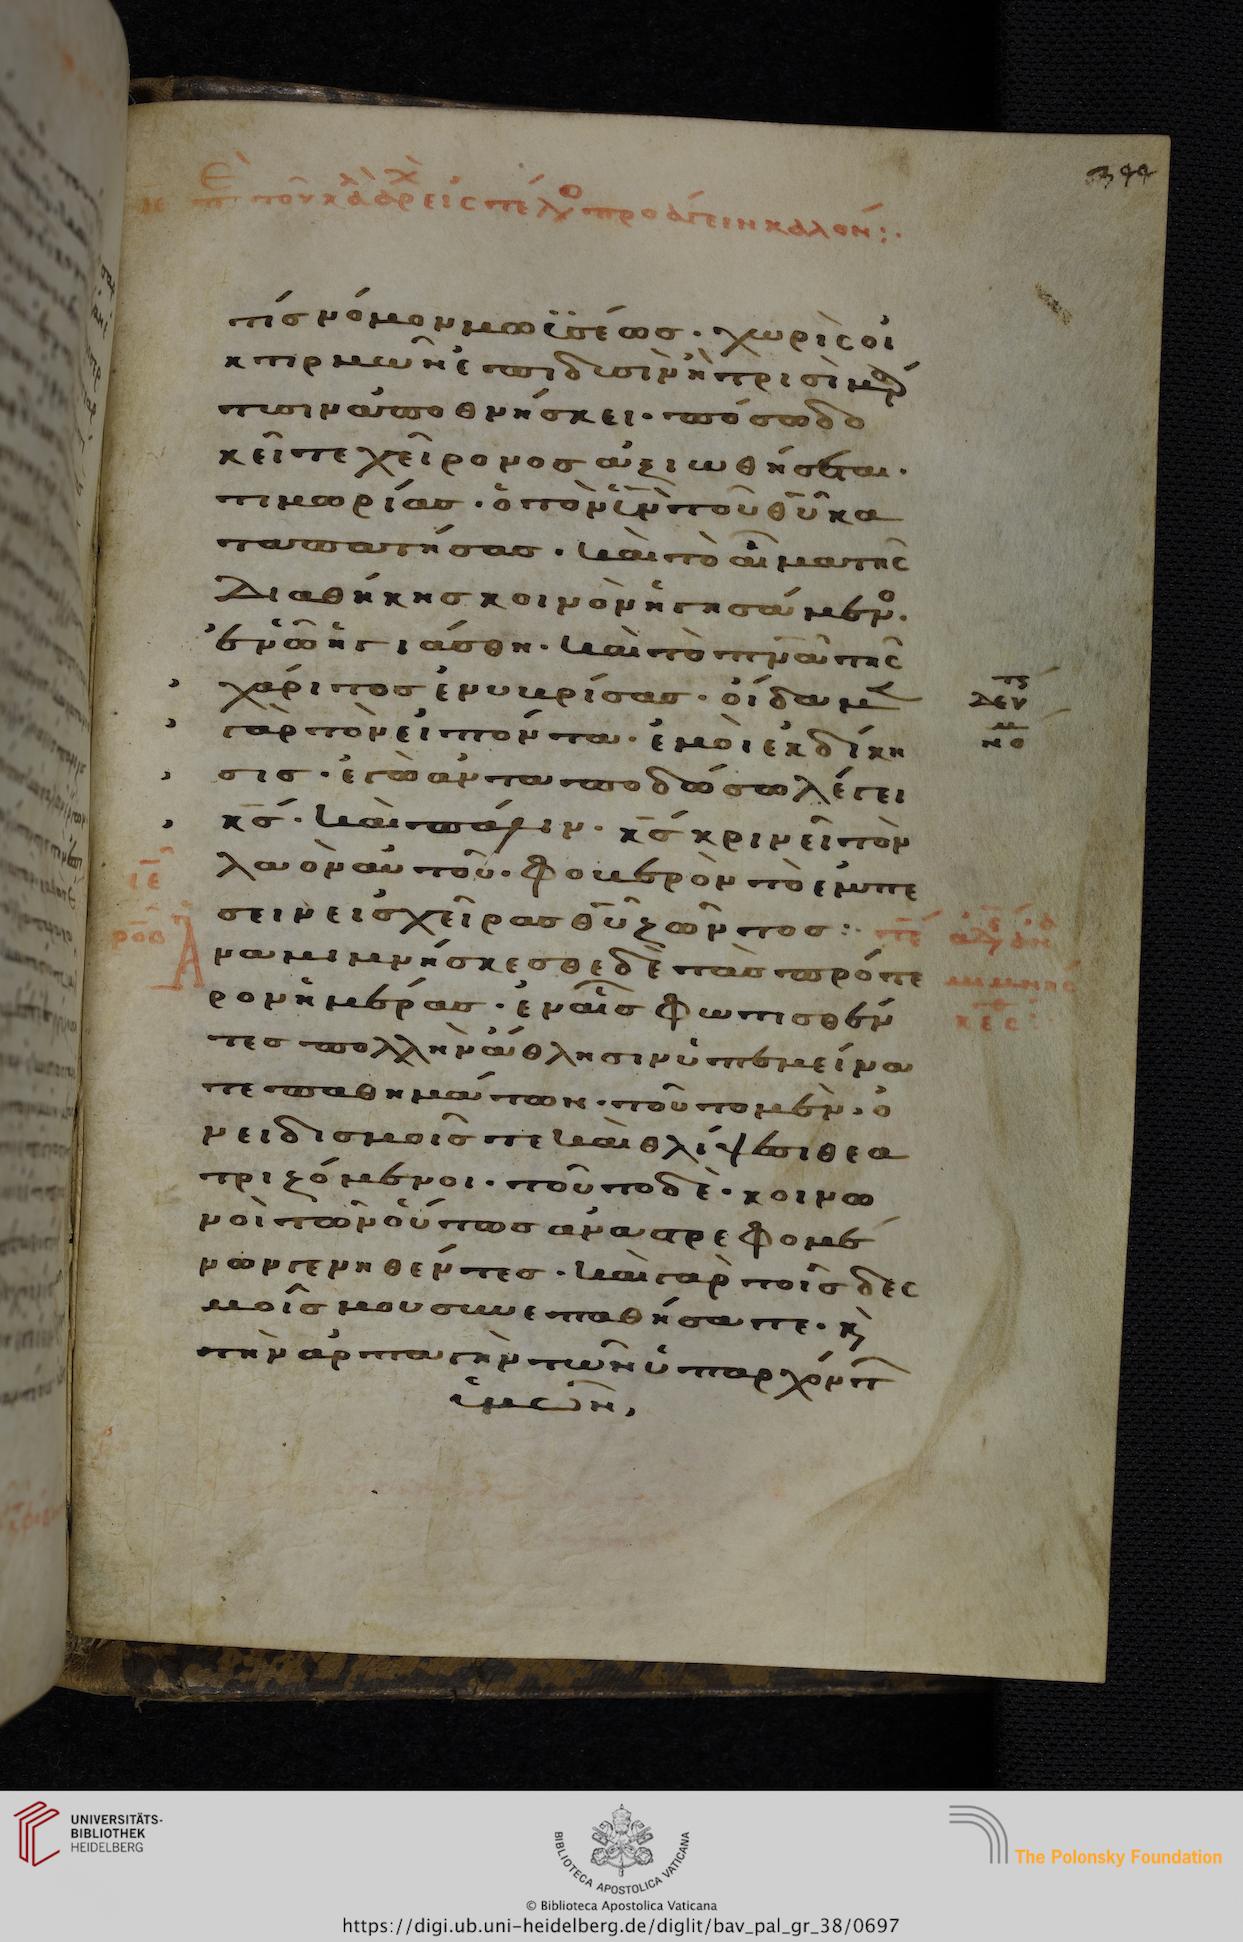 344
τίσ νόμον μωϊσέωσ · χωρὶς οἰ
κτιρμῶν ἐπι δυσὶν ἢ τρισὶ μάρ
τυσιν ἀποθνήσκει · πόσω δο
κεῖτε χείρονοσ ἀξιωθήσεται ·
τιμωρίας · ὁ τὸν ῡν τοῦ θῡ κα
ταπατήσας · καὶ τὸ αἷμα τῆς
διαθήκησ κοινὸν ἡγησάμενο ·
ἐν ᾧ ἡγιάσθη · καὶ τὸ πνᾱ τῆς
χάριτοσ ἐνυβρίσας · οἴδαμε
γὰρ τὸν εἰπόντα · ἐμὸι ἐκδίκη
σις · ἐγὼ ἀνταποδώσω λέγει
κσ̄ · καὶ πάλιν · κσ̄ κρινεῖ τὸν
λαὸν αὐτοῦ · φοβερὸν τὸ ἐμπε
σειν εισ χεῖρασ θῡ ζῶντος :
Ἀναμιμνήσκεσθε δὲ τὰσ πρότε
ρον ἡμέρας · ἐν αἷσ φωτισθέν
τες πολλὴν ἄθλησιν ὑπεμείνα
τε παθημάτων · τοῦτο μὲν · ὀ
νειδισμοῖσ τε καὶ θλίψεσι θεα
τριζόμενοι · τοῦτο δὲ · κοινω
νοὶ τῶν οὕτως αναστρεφομέ
νων γενηθέντες · καὶ γὰρ τοῖς δες
μοῖσ μου συνεπαθήσατε · κ̀
τὴν ἁρπαγὴν τῶν ὑπαρχόντ
ὑμῶν,
UNIVERSITÄTS-
BIBLIOTHEK
HEIDELBERG
BIBLIOTECA APOSTOLICA VATICANA
The Polonsky Foundation
© Biblioteca Apostolica Vaticana
https://digi.ub.uni-heidelberg.de/diglit/bav_pal_gr_38/0697